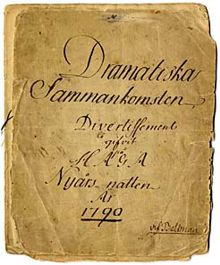 Dramatiska
Sammankomsten
Divertissement
gifvit
Nyårs natten
År
1790
af Bellman